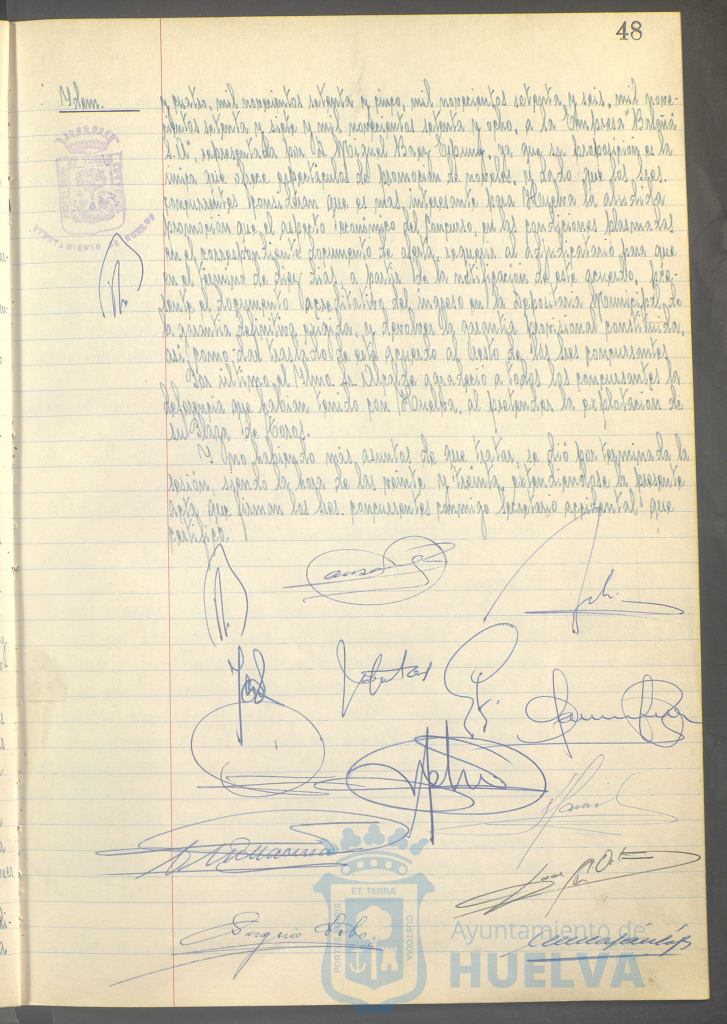 48
Idem.
y cuatro, mil novecientos setenta y cinco, mil novecientos setenta y seis, mil nove-
cientos setenta y siete y mil novecientos setenta y ocho, a la Empresa "Balañá
S.A", representada por D. Miguel Baez Espuny, ya que su proposición es la
única que ofrece espectáculos de promoción de noveles, y dado que los Sres.
concurrentes consideran que es más interesante para Huelva la aludida
promoción que el aspecto económico del Concurso, en las condiciones plasmadas
en el correspondiente documento de oferta, requerir al adjudicatario para que
en el término de diez días, a partir de la notificación de este acuerdo, pre-
sente el documento acreditativo del ingreso en la Depositaria Municipal, de
la garantía definitiva exigida, y devolver la garantía provisional constituida,
así como dar traslado de este acuerdo al resto de los Sres concursantes
Por último, el Ilmo. Sr. Alcalde agradeció a todos los concursantes la
deferencia que habían tenido con Huelva, al pretender la explotación de
su Plaza de Toros.
Y no habiendo más asuntos de que tratar, se dió por terminada la
sesión, siendo la hora de las veinte y treinta, extendiéndose la presente
acta que firman los Sres. concurrentes conmigo Secretario accidental que
certifico.
Eugenio Lobo
PORTUS MARIS ET TERRÆ CUSTODIA
Ayuntamiento de
HUELVA